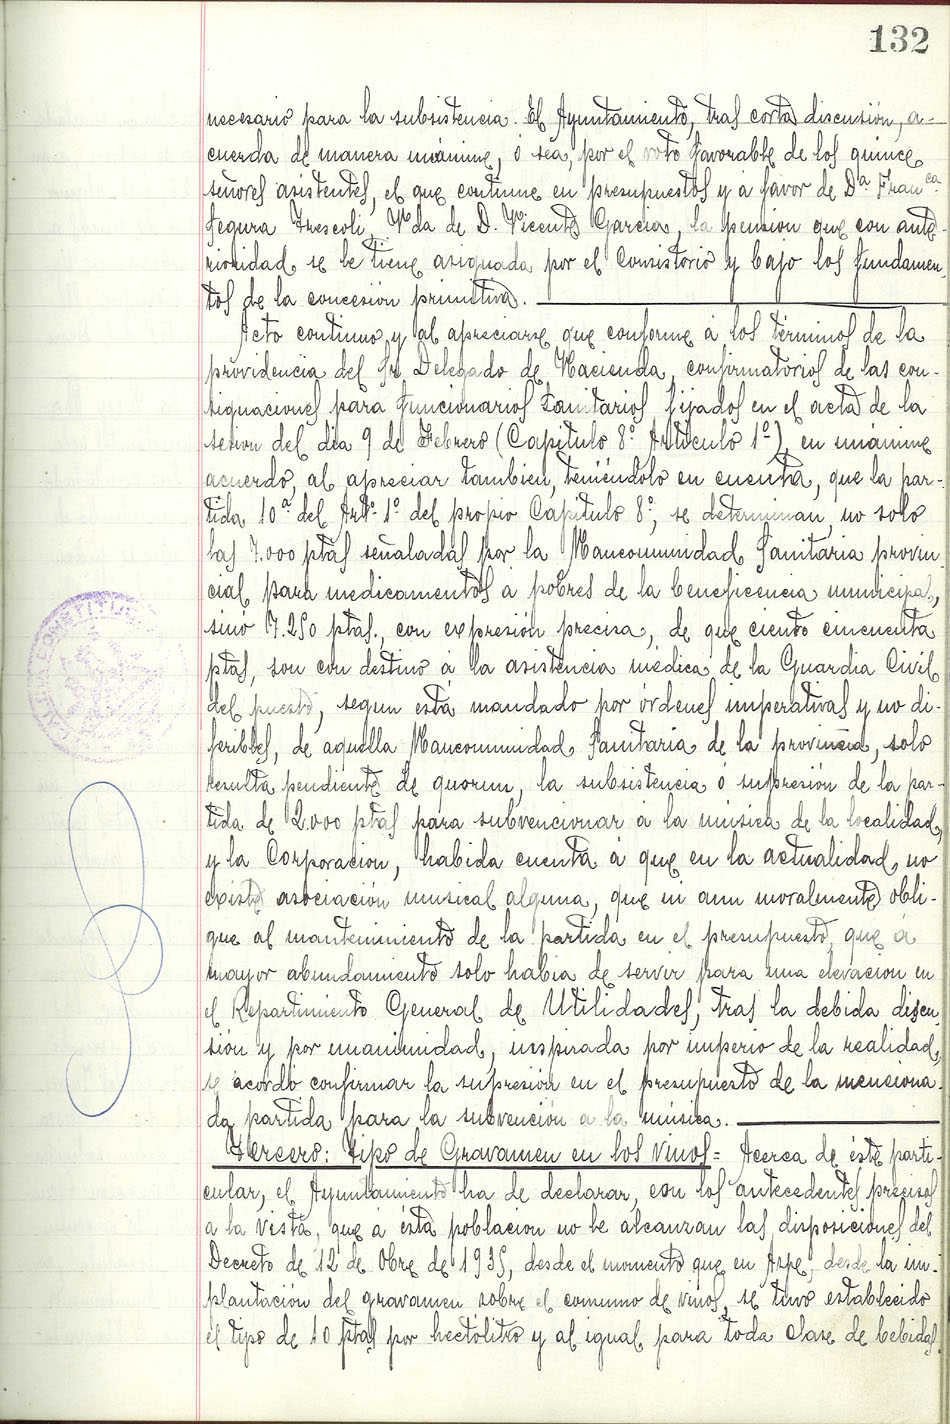 132
necesario para la subsistencia. El Ayuntamiento, tras corta discusión, a-
cuerda de manera unánime, ó sea, por el voto favorable de los quince
señores asistentes, el que continue en presupuestos y á favor de Dª. Franca.
Segura Frescoli, Vda de D. Vicente Garcia, la pension que con ante-
rioridad se le tiene asignada por el Consistorio y bajo los fundamen-
tos de la concesión primitiva.
Acto continuo y al apreciarse que conforme á los términos de la
providencia del Sr. Delegado de Hacienda, confirmatorios de las con-
signaciones para funcionarios Sanitarios, fijados en el acta de la
sesion del dia 9 de Febrero (Capitulo 8º Articulo 1º), en unánime
acuerdo, al apreciar tambien, teniéndolo en cuenta, que la par-
tida 10ª del Artº. 1º del propio Capitulo 8º, se determinan, no solo
las 7.000 ptas señaladas por la Mancomunidad Sanitaria provin-
cial para medicamentos á pobres de la beneficencia municipal,
sinó 7.250 ptas., con expresión precisa, de que ciento cincuenta
ptas, son con destino á la asistencia médica de la Guardia Civil
del puesto, segun está mandado por órdenes imperativas y no di-
feribles, de aquella Mancomunidad Sanitaria de la provincia, solo
resulta pendiente de quorum, la subsistencia ó supresión de la par-
tida de 2.000 ptas para subvencionar á la música de la localidad,
y la Corporacion, habida cuenta á que en la actualidad, no
existe asociación musical alguna, que ni aun moralmente obli-
gue al mantenimiento de la partida en el presupuesto, que á
mayor abundamiento solo habia de servir para una elevacion en
el Repartimiento General de Utilidades, tras la debida discu-
sión y por unanimidad, inspirada por imperio de la realidad,
se acordó confirmar la supresión en el presupuesto de la menciona-
da partida para la subvención a la música.
Tercero: Tipo de Gravamen en los vinos= Acerca de éste parti-
cular, el Ayuntamiento ha de declarar, con los antecedentes precisos
a la vista, que á ésta poblacion no le alcanzan las disposiciones del
Decreto de 12 de Obre de 1935, desde el momento que en Aspe, desde la im-
plantación del gravamen sobre el consumo de vinos, se tuvo establecido
el tipo de 10 ptas por hectolitro y al igual para toda clase de bebidas.